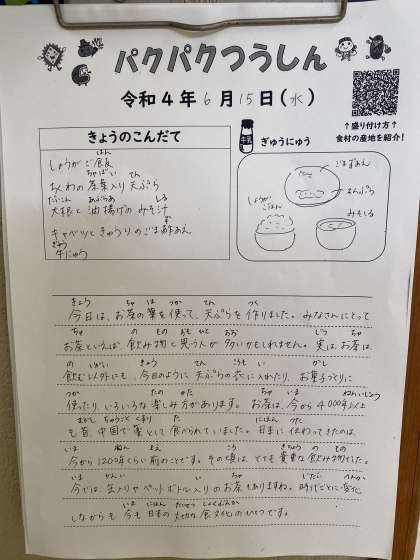 パクパクつうしん
令和4年6月15日(水)
↑盛り付け方↑
食材の産地を紹介!
きょうのこんだて
しょうがご飯
はん
ちくわの茶葉入り天ぷら
ちゃば い てん
大根と油揚げのみそ汁
だいこん あぶらあ しる
キャベツときゅうりのごま酢あえ
す
牛にゅう
ぎゅう
牛乳
ぎゅうにゅう
ごまずあえ
天ぷら
しょうがごはん
みそしる
きょう ちゃ は つか てん つく
今日は、お茶の葉を使って、天ぷらを作りました。みなさんにとって
ちゃ の もの おも ひと おお じつ ちゃ
お茶といえば、飲み物と思う人が多いかもしれません。実は、お茶は、
の いがい きょう てん ころも い かし
飲む以外にも、今日のように天ぷらの衣に入れたり、お菓子づくりに
つか たの かた ちゃ いま ねんいじょう
使ったり、いろいろな楽しみ方があります。お茶は、今から4000年以上
むかし ちゅうごく くすり た にほん つた
も昔、中国で薬として食べられていました。日本に伝わってきたのは、
いま ねん まえ ころ きちょう の もの
今から1200年くらい前のことです。その頃は、とても貴重な飲み物でした。
いま かん い い ちゃ じだい へんか
今では、缶入りやペットボトル入りのお茶もありますね。時代ごとに変化
いま にほん たいせつ しょくぶんか
しながらも今も日本の大切な食文化のひとつです。